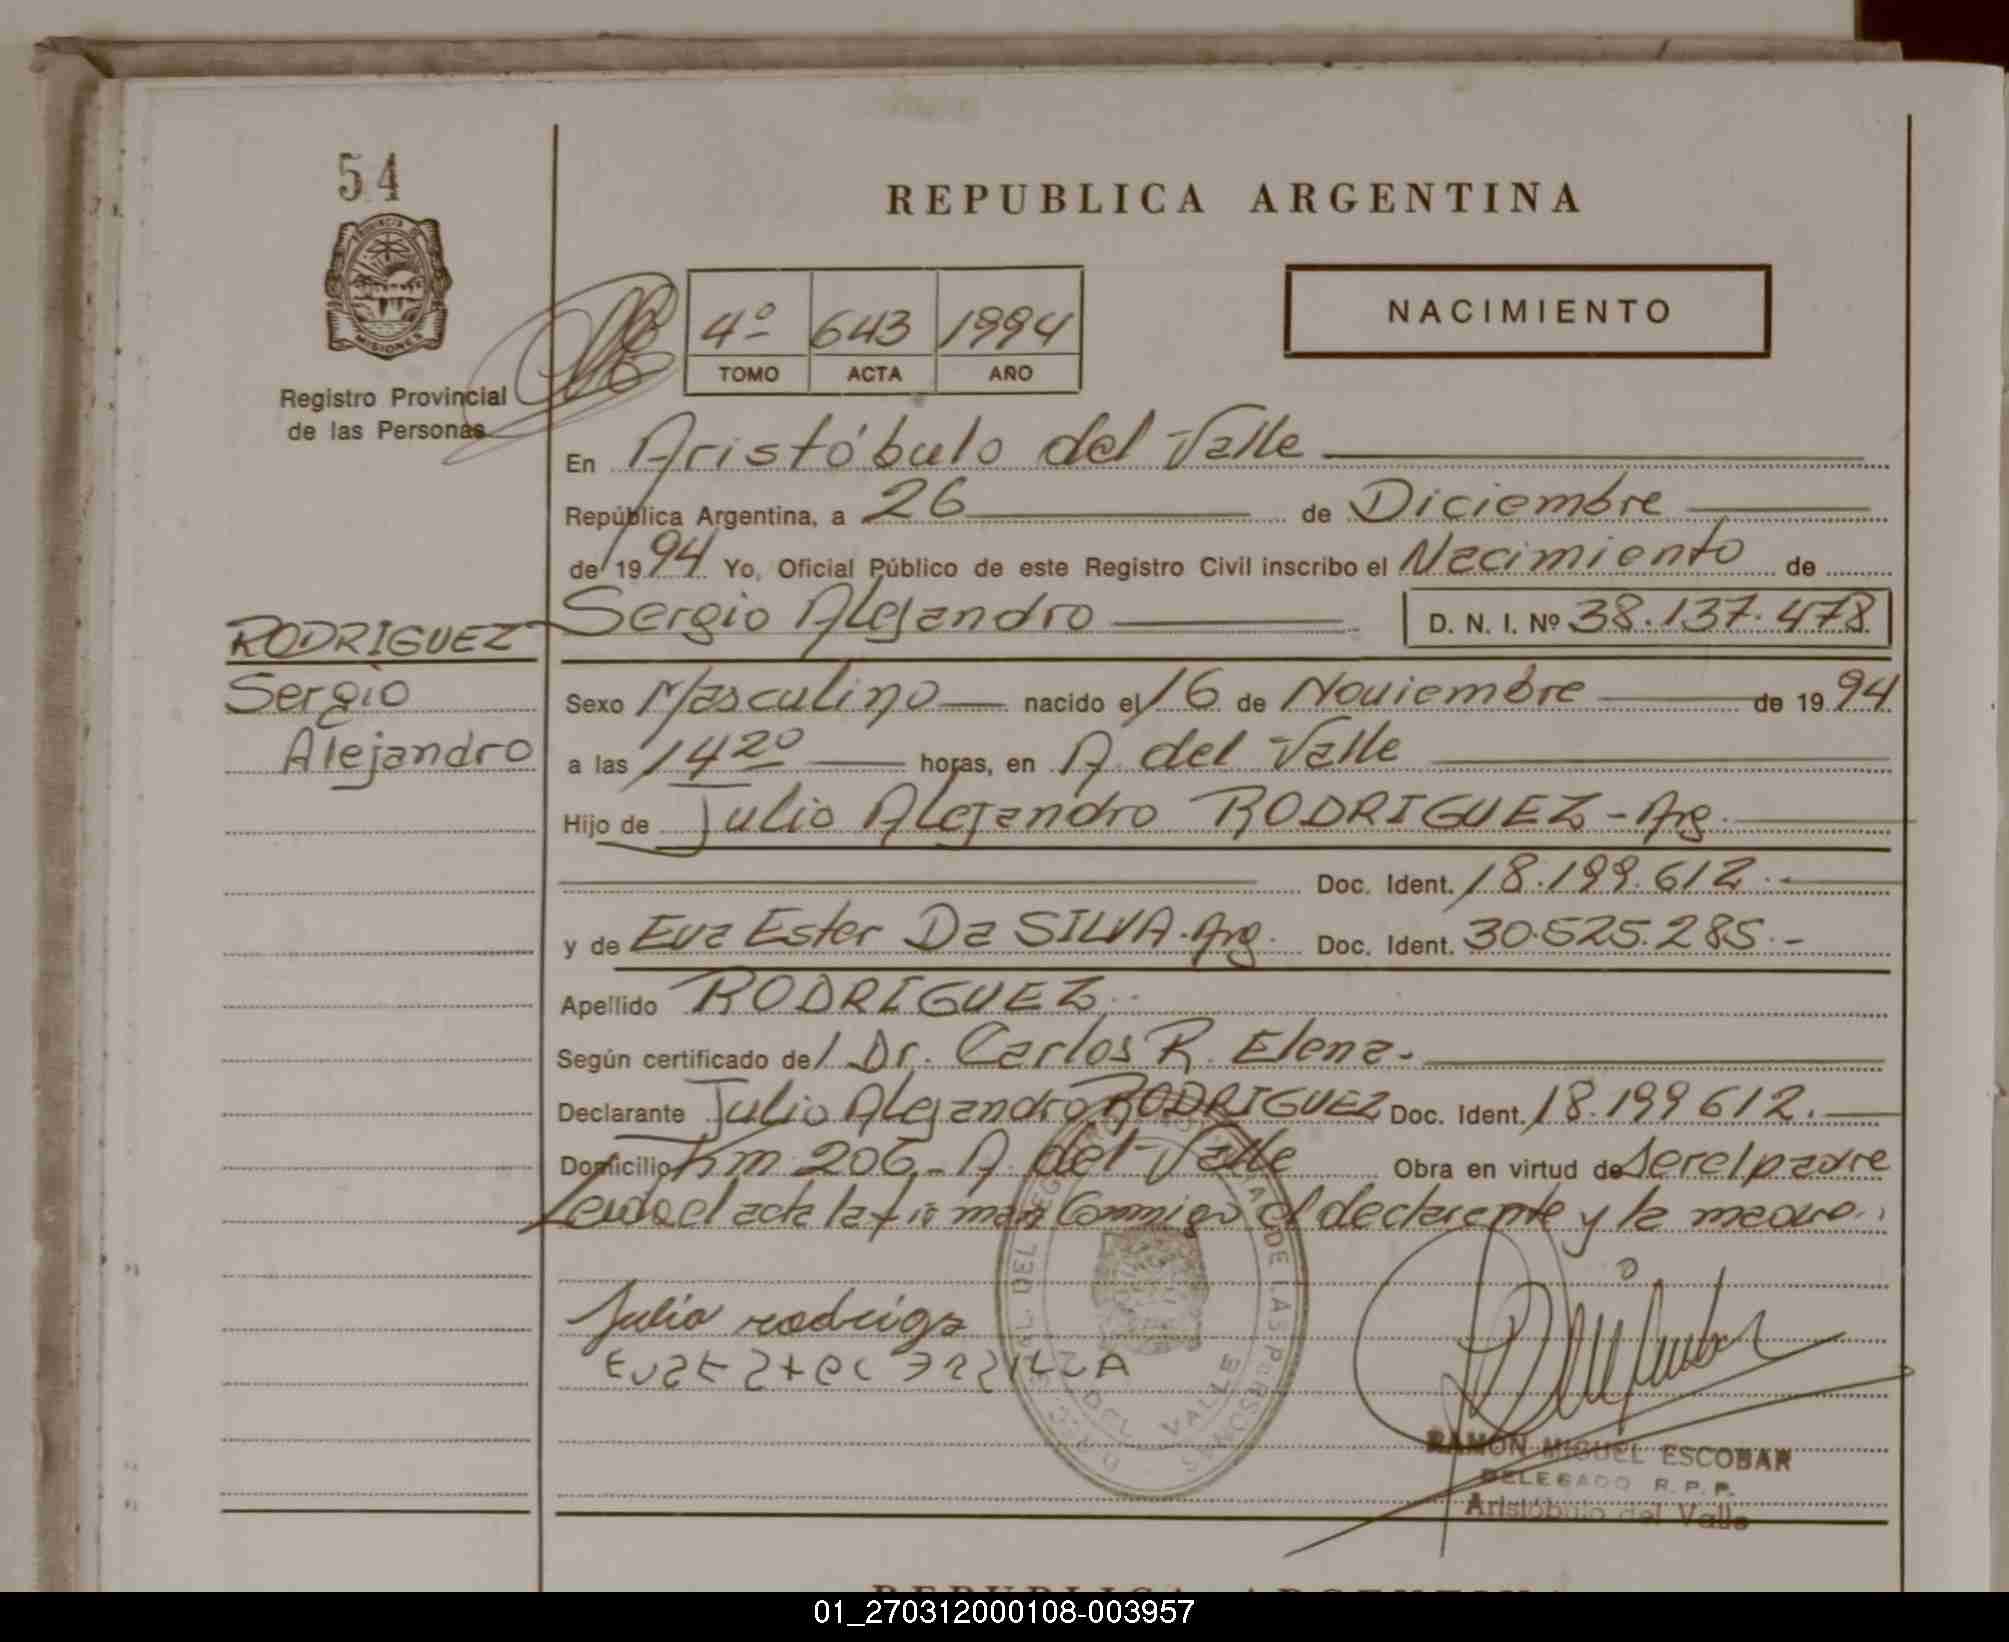 54
REPUBLICA ARGENTINA
PROVINCIA DE
MISIONES
Registro Provincial
de las Personas
4º 643 1994
TOMO ACTA AÑO
NACIMIENTO
En Aristóbulo del Valle
República Argentina, a 26 de Diciembre
de 1994 Yo, Oficial Público de este Registro Civil inscribo el Nacimiento de
Sergio Alejandro D. N. I. Nº 38.137.478
RODRIGUEZ
Sergio
Alejandro
Sexo Masculino nacido el 16 de Noviembre de 1994
a las 14 20 horas, en A. del Valle
Hijo de Julio Alejandro RODRIGUEZ - Arg.
Doc. Ident. 18.199.612.-
y de Eva Ester Da SILVA. Arg. Doc. Ident. 30.525.285.-
Apellido RODRIGUEZ.
Según certificado del Dr. Carlos R. Elena.
Declarante Julio Alejandro RODRIGUEZ Doc. Ident. 18.199 612.
Domicilio Km 206 - A. del Valle Obra en virtud de ser el padre
Leida el acta la firman conmigo el declarante y la madre.
Julio rodrigz
DEL VALLE
RAMON MIGUEL ESCOBAR
DELEGADO R. P. P.
Aristóbulo del Valle
REPUBLICA ARGENTINA
01_270312000108-003957